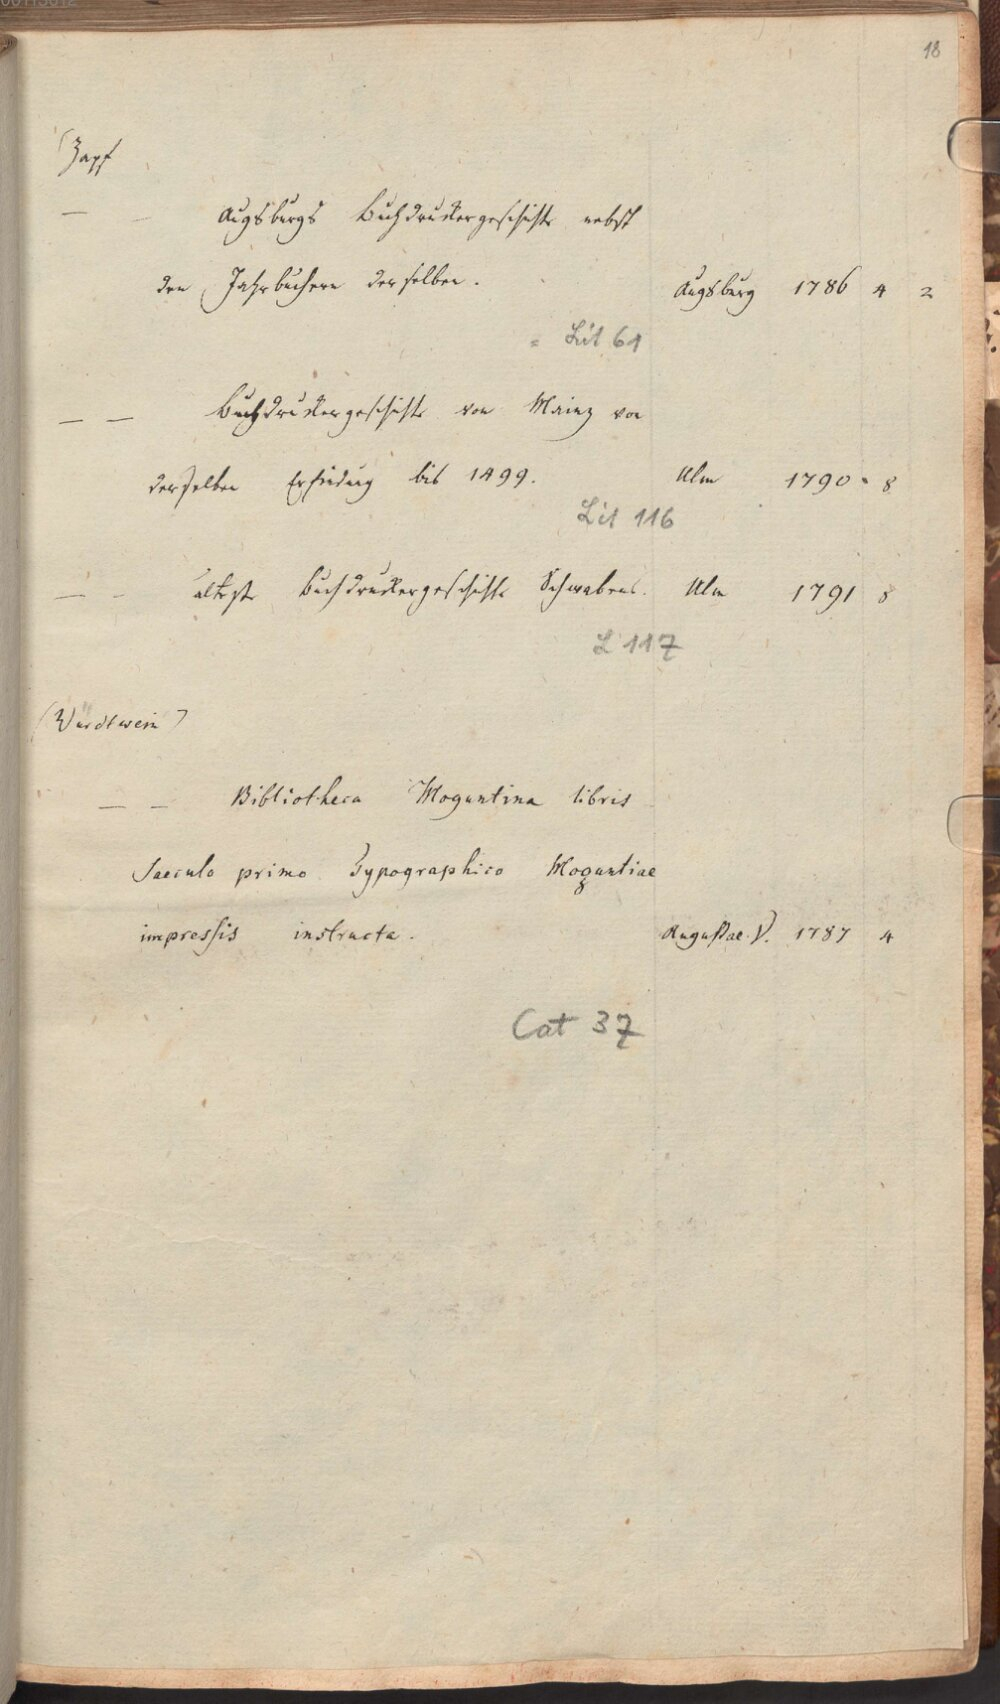 18
(Zapf
— — Augsburgs Buchdruckergeschichte nebst
den Jahrbüchern derselben. Augsburg 1786 4 2
= Lit 61
— — Buchdruckergeschichte von Mainz von
derselben Erfindung bis 1499. Ulm 1790 8
Lit 116
— — älteste Buchdruckergeschichte Schwabens. Ulm 1791 8
L 117
(Würdtwein)
— — Bibliotheca Moguntina libris
Saeculo primo Typographico Moguntiae
impressis instructa. Augustae. V. 1787 4
Cat 37